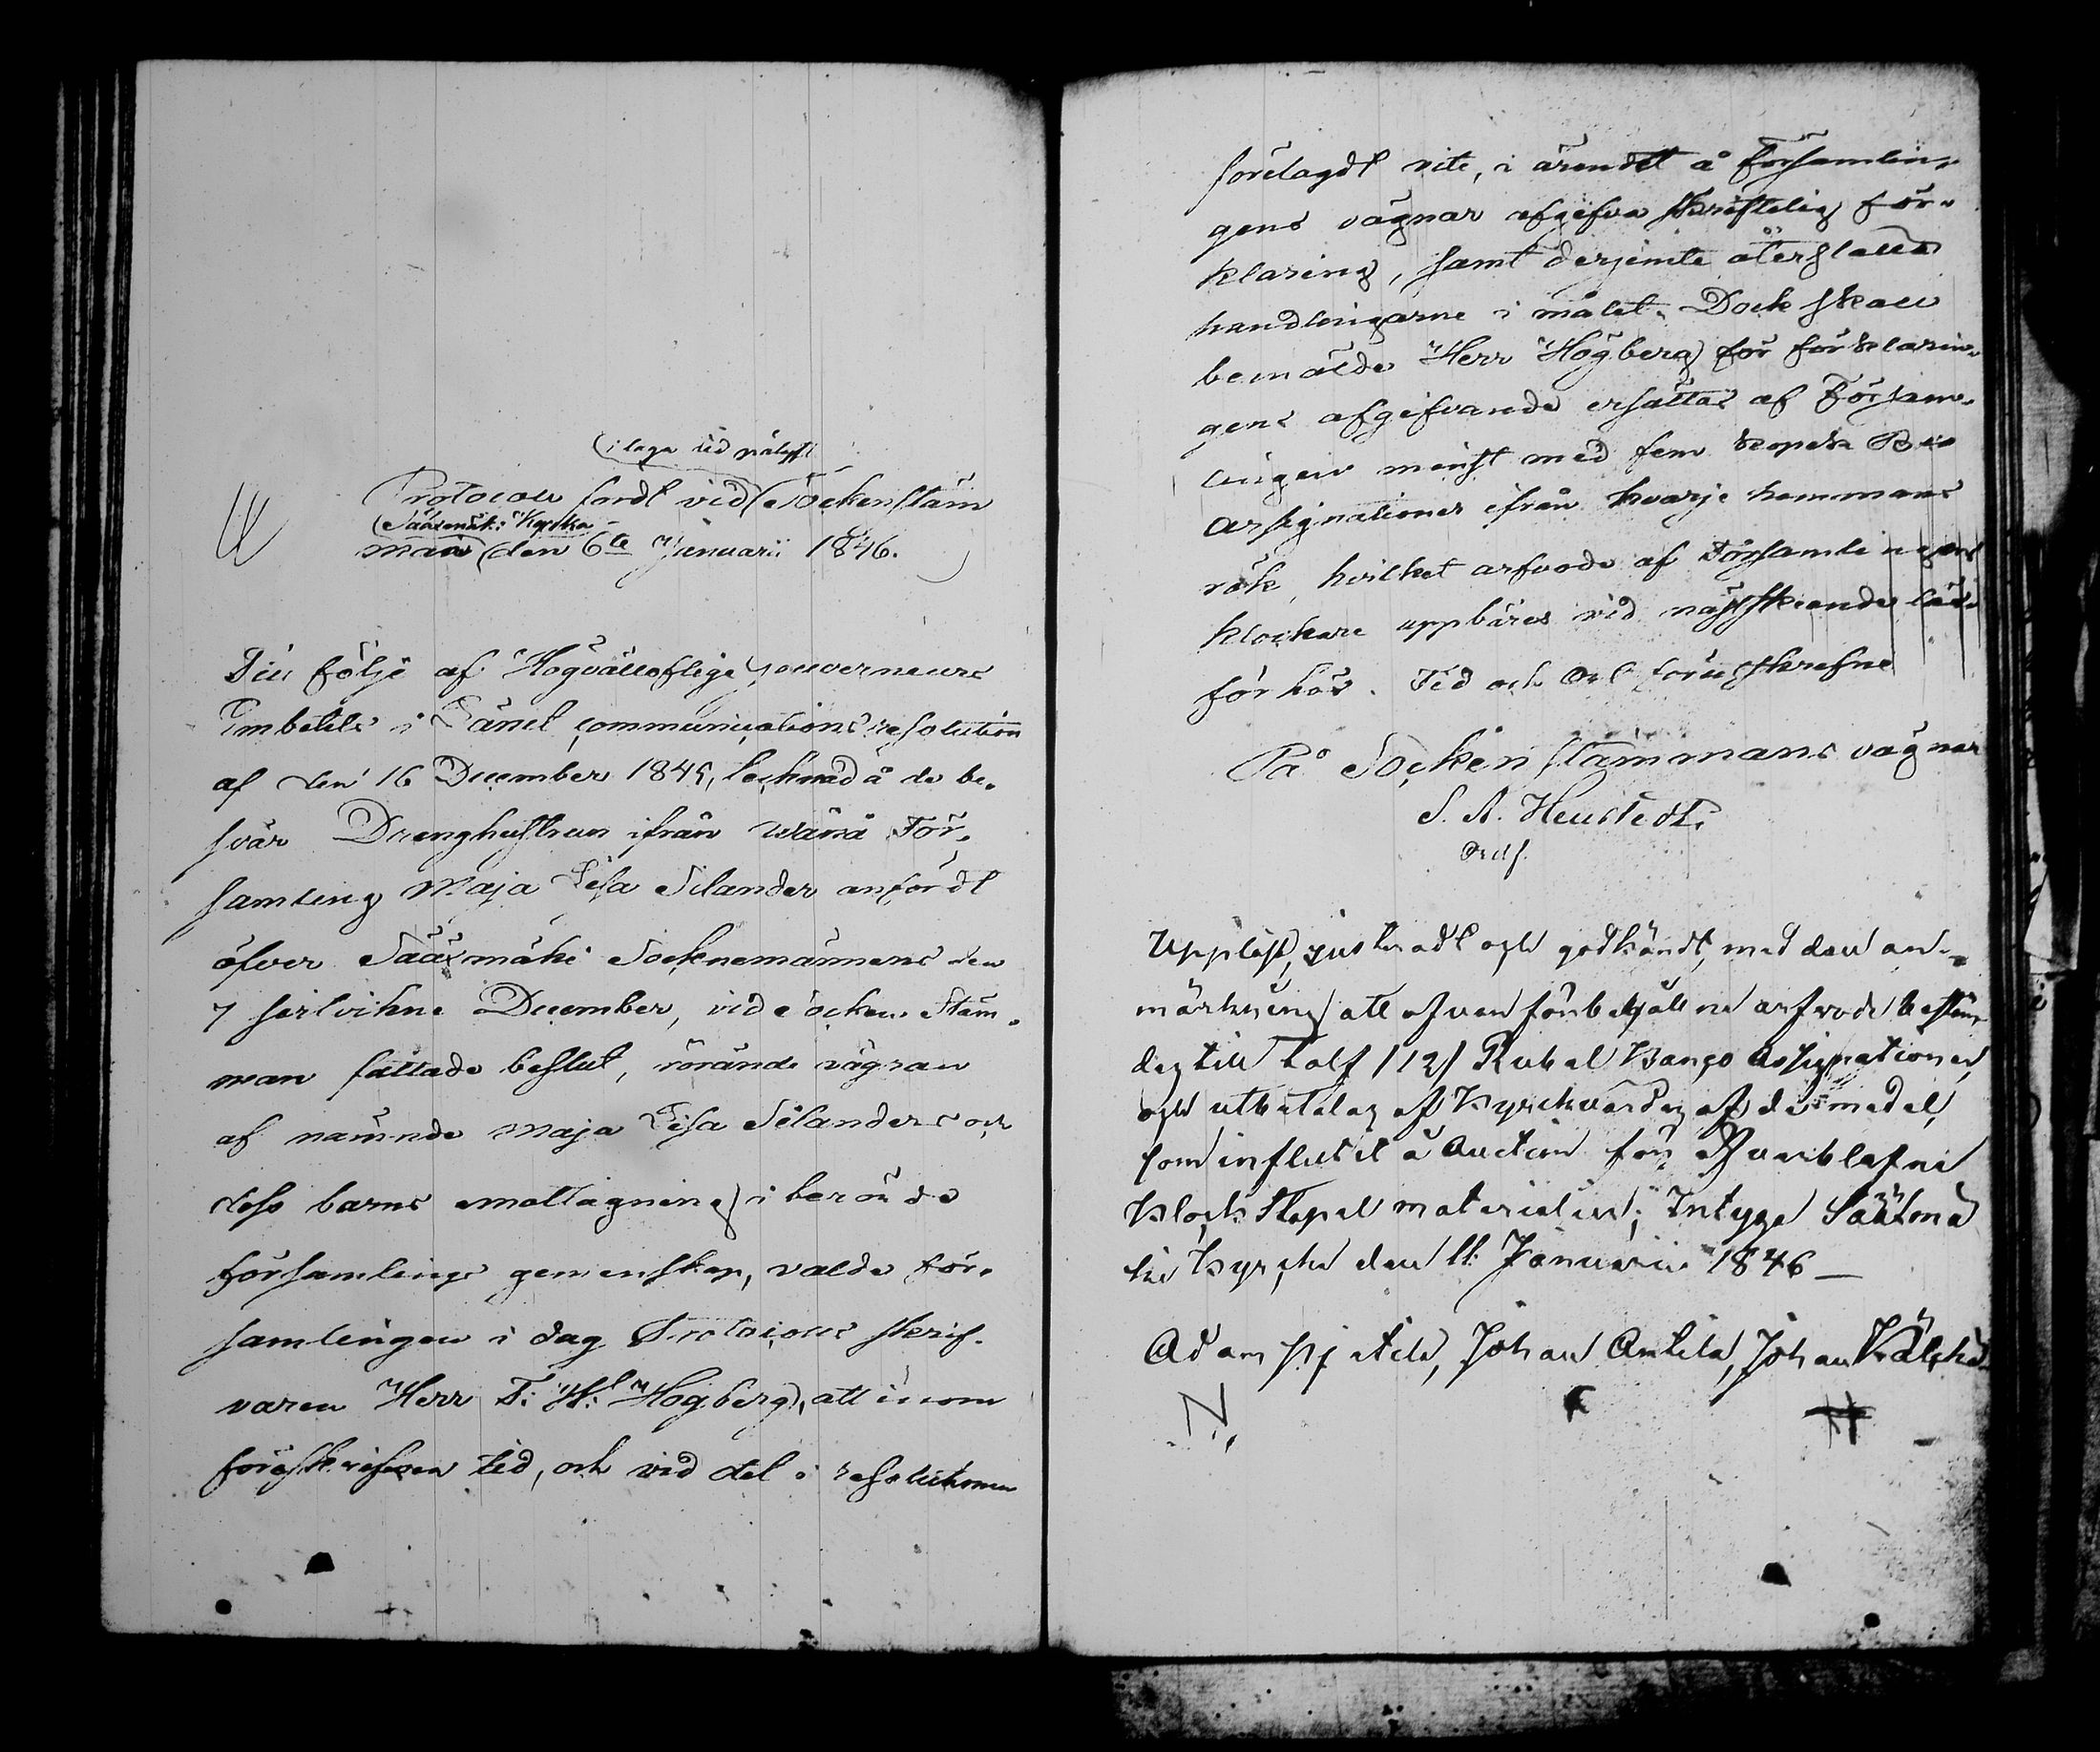 i laga tid pålyst
Protocoll fördt vid Sockenstäm
Sääxmäki Kyrka
man den 6te Januarii 1846.
Till följe af Högvälloflige Gouverneurs
Embetets i Länet communications resolution
af den 16 December 1845, tecknad å de be-
svär Drenghustrun ifrån Wånå För-
samling Maja Lisa Selander anfördt
öfver Sääxmäki Sockenemännens den
7 sistvikne December, vid Socken Stäm-
man fattade beslut, rörande vägran
af nämnde Maja Lisa Selanders och
dess barns emottagning i berörde
församlings gemenskap, valde för-
samlingen i dag Protocolls skrif-
varen Herr F: H: Högberg, att inom
föreskrifven tid, och vid det i resolutionen
förelagdt vite, i ärendet å Församlin-
gens vägnar afgifva skriftelig för-
klaring, samt derjemte återställa
handlingarne i målet. Dock skall
bemälde Herr Högberg för förklarin-
gens afgifvande ersättas af Försam-
lingen minst med fem kopek Bco
Assignationer ifrån hvarje hemmans
rök, hvilket arfvode af Församlingens
klockare uppbäres vid nästskeande läse
förhör. Tid och Ort förutskrefne
På Sockenstämmans vägnar
S. A. Heurstedt.
Ordf.
Uppläst, justeradt och godkändt, med den an-
märkning att ofvanförbehållne arfvode bestäm-
des till Tolf /12/ Rubel Banco Assignationer,
och utbetalas af Kyrckvärden af de medel,
som influtit å Auction för
Klock Stapel materialier; Intyga Sääxmä
ki Kyrcka den 11 Januarii 1846
Adam, Johan Anttila, Johan Wälkki